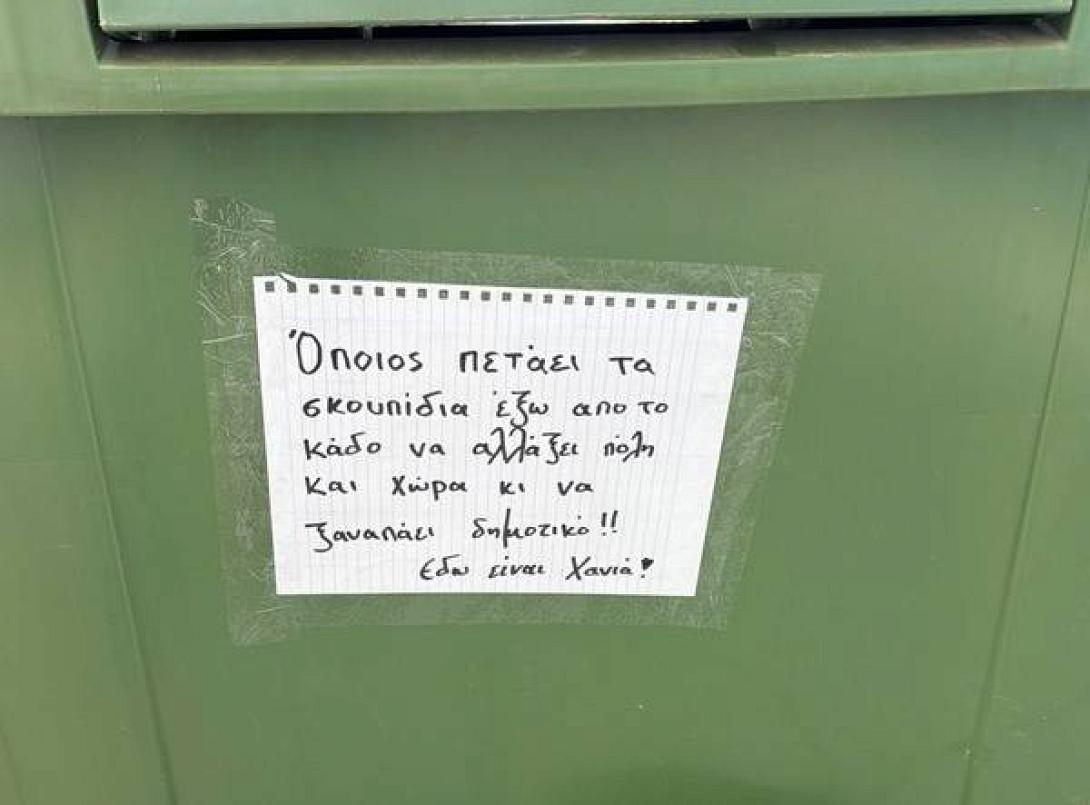 Όποιος πετάει τα
σκουπίδια έξω απο το
κάδο να αλλάξει πόλη
και χώρα κι να
ξαναπάει δημοτικό!!
Εδω είναι Χανιά!